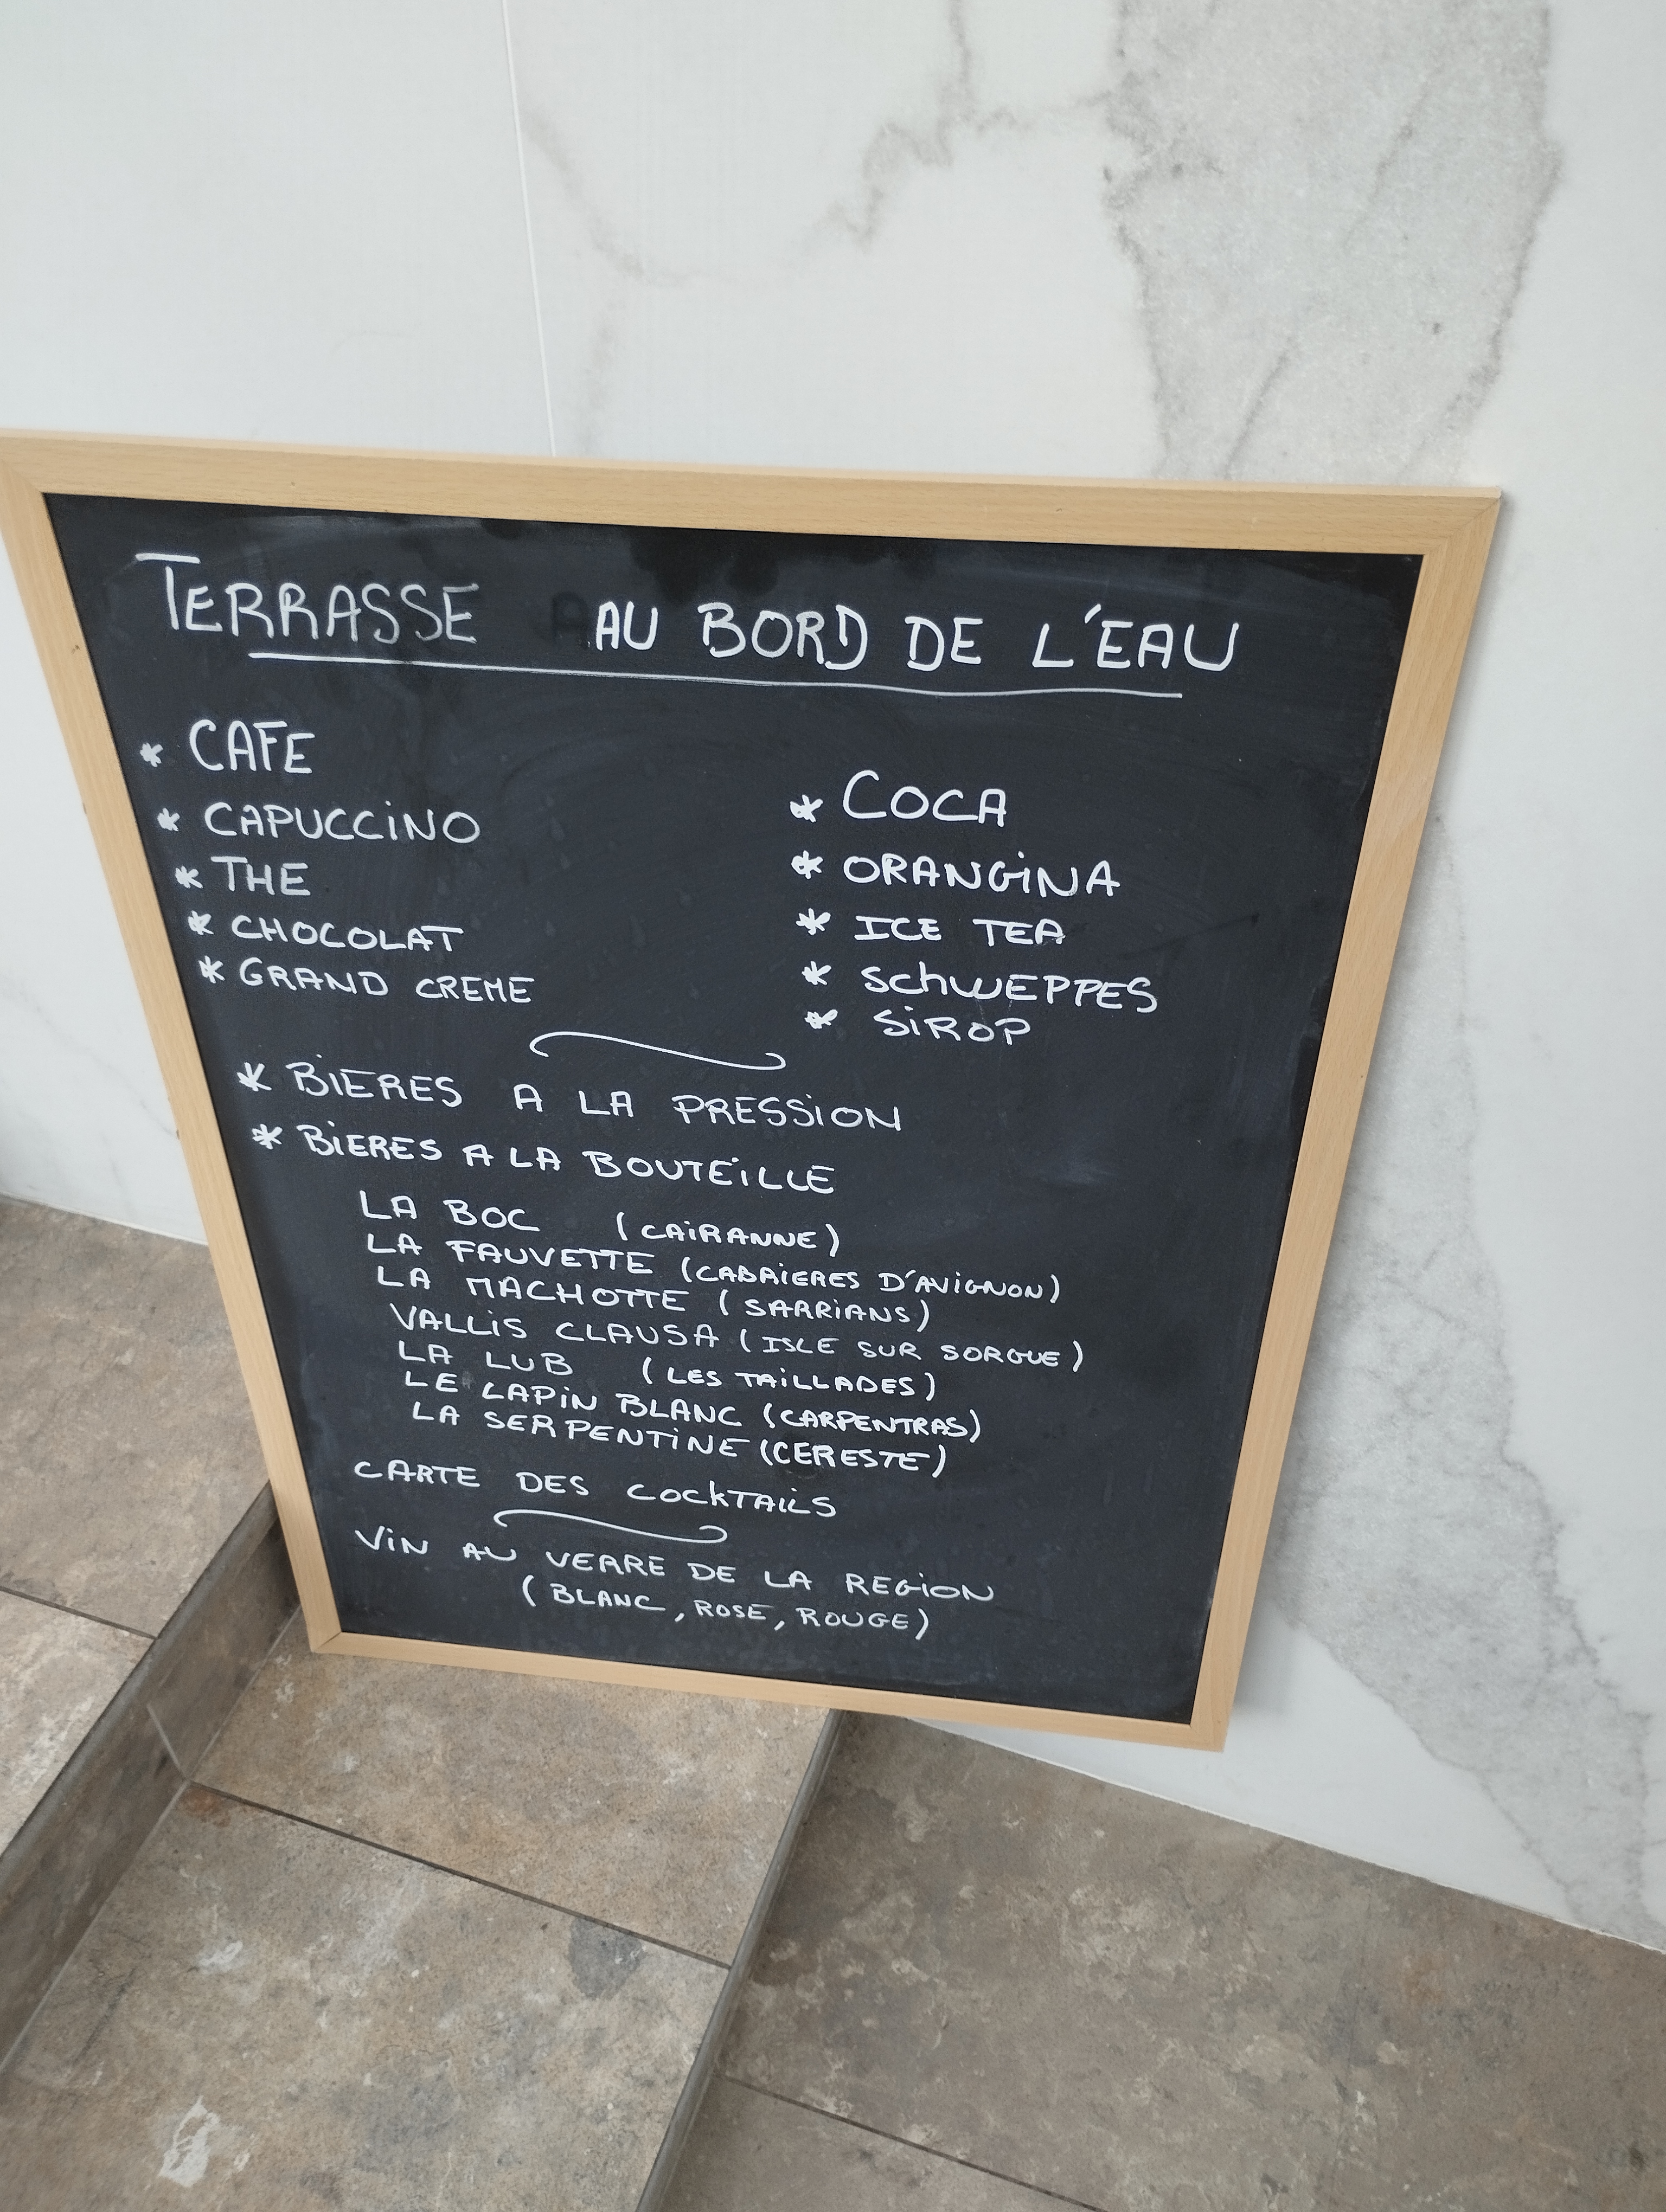 TERRASSE AU BORD DE L'EAU
* CAFE
* CAPUCCINO
* THE
* CHOCOLAT
* GRAND CREME
* COCA
* ORANGINA
* ICE TEA
* SCHWEPPES
* SIROP
* BIERES A LA PRESSION
* BIERES A LA BOUTEILLE
LA BOC (CAIRANNE)
LA FAUVETTE (CABRIERES D'AVIGNON)
LA MACHOTTE (SARRIANS)
VALLIS CLAUSA (ISLE SUR SORGUE)
LA LUB (LES TAILLADES)
LE LAPIN BLANC (CARPENTRAS)
LA SERPENTINE (CERESTE)
CARTE DES COCKTAILS
VIN AU VERRE DE LA REGION
(BLANC, ROSE, ROUGE)